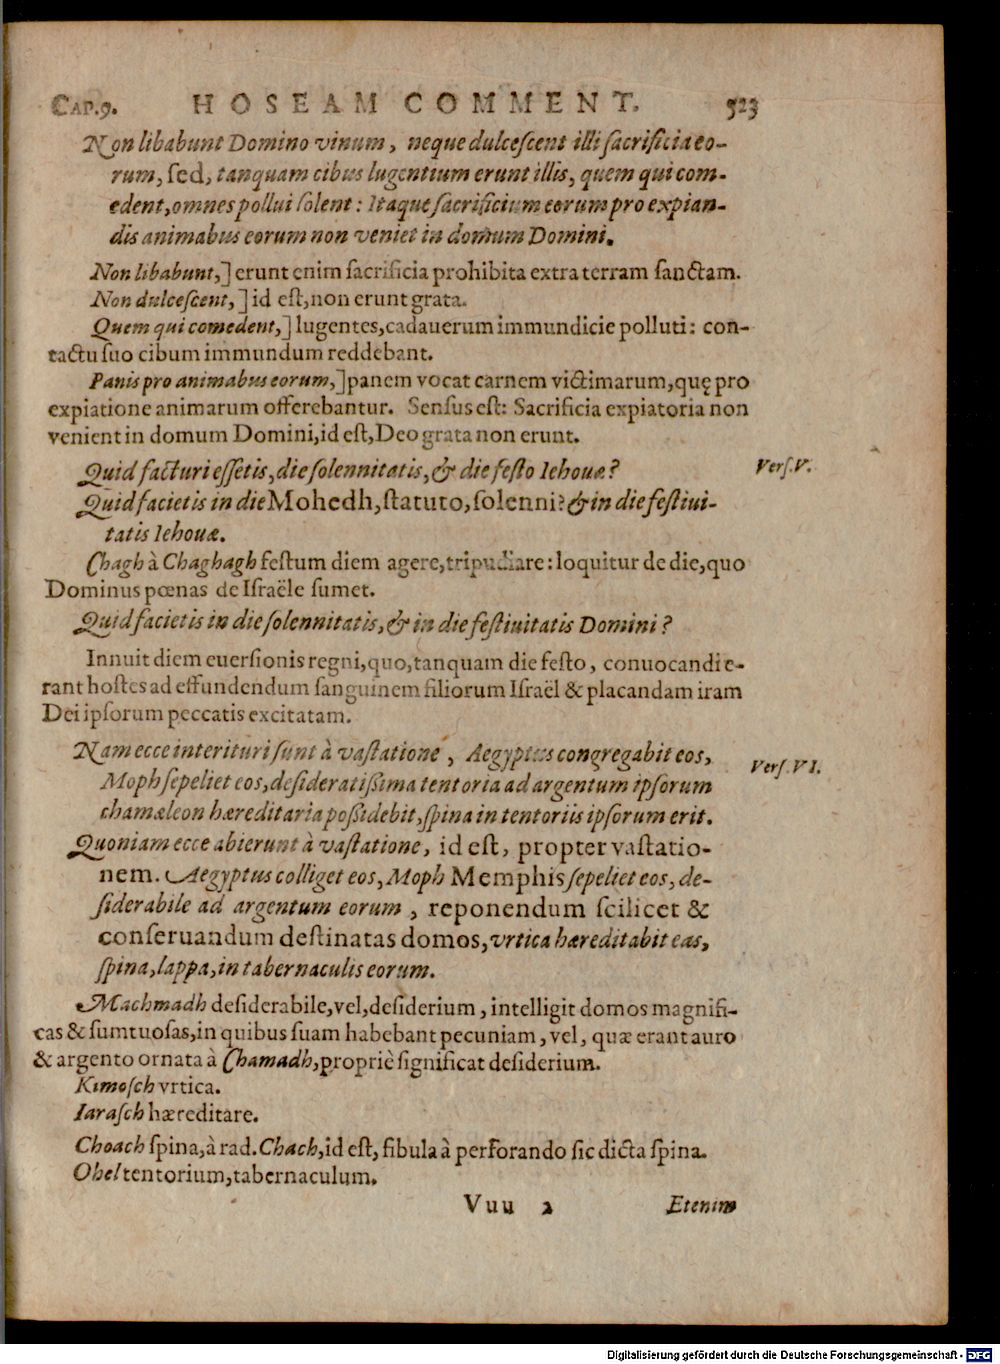 CAP.9. HOSEAM COMMENT. 523
Non libabunt Domino vinum, neque dulcescent illi sacrificia eo-
rum, sed, tanquam cibus lugentium erunt illis, quem qui com-
edent, omnes pollui solent: Itaque sacrificium eorum pro expian-
dis animabus eorum non veniet in domum Domini.
Non libabunt,] erunt enim sacrificia prohibita extra terram sanctam.
Non dulcescent,] id est, non erunt grata.
Quem qui comedent,] lugentes, cadauerum immundicie polluti: con-
tactu suo cibum immundum reddebant.
Panis pro animabus eorum,] panem vocat carnem victimarum, quę pro
expiatione animarum offerebantur. Sensus est: Sacrificia expiatoria non
venient in domum Domini, id est, Deo grata non erunt.
Quid facturi essetis, die solennitatis, & die festo Iehouæ? Vers. V.
Quid facietis in die Mohedh, statuto, solenni? & in die festiui-
tatis Iehouæ.
Chagh à Chaghagh festum diem agere, tripudiare: loquitur de die, quo
Dominus pœnas de Israële sumet.
Quid facietis in die solennitatis, & in die festiuitatis Domini?
Innuit diem euersionis regni, quo, tanquam die festo, conuocandi e-
rant hostes ad effundendum sanguinem filiorum Israël & placandam iram
Dei ipsorum peccatis excitatam.
Nam ecce interituri sunt à vastatione, Aegyptus congregabit eos, Vers. VI.
Moph sepeliet eos, desideratissima tentoria ad argentum ipsorum
chamæleon hæreditaria possidebit, spina in tentoriis ipsorum erit.
Quoniam ecce abierunt à vastatione, id est, propter vastatio-
nem. Aegyptus colliget eos, Moph Memphis sepeliet eos, de-
siderabile ad argentum eorum, reponendum scilicet &
conseruandum destinatas domos, vrtica hæreditabit eas,
spina, lappa, in tabernaculis eorum.
Machmadh desiderabile, vel, desiderium, intelligit domos magnifi-
cas & sumtuosas, in quibus suam habebant pecuniam, vel, quæ erant auro
& argento ornata à Chamadh, propriè significat desiderium.
Kimosch vrtica.
Iarasch hæreditare.
Choach spina, à rad. Chach, id est, fibula à perforando sic dicta spina.
Ohel tentorium, tabernaculum.
Vuu 2 Etenim
Digitalisierung gefördert durch die Deutsche Forschungsgemeinschaft - DFG